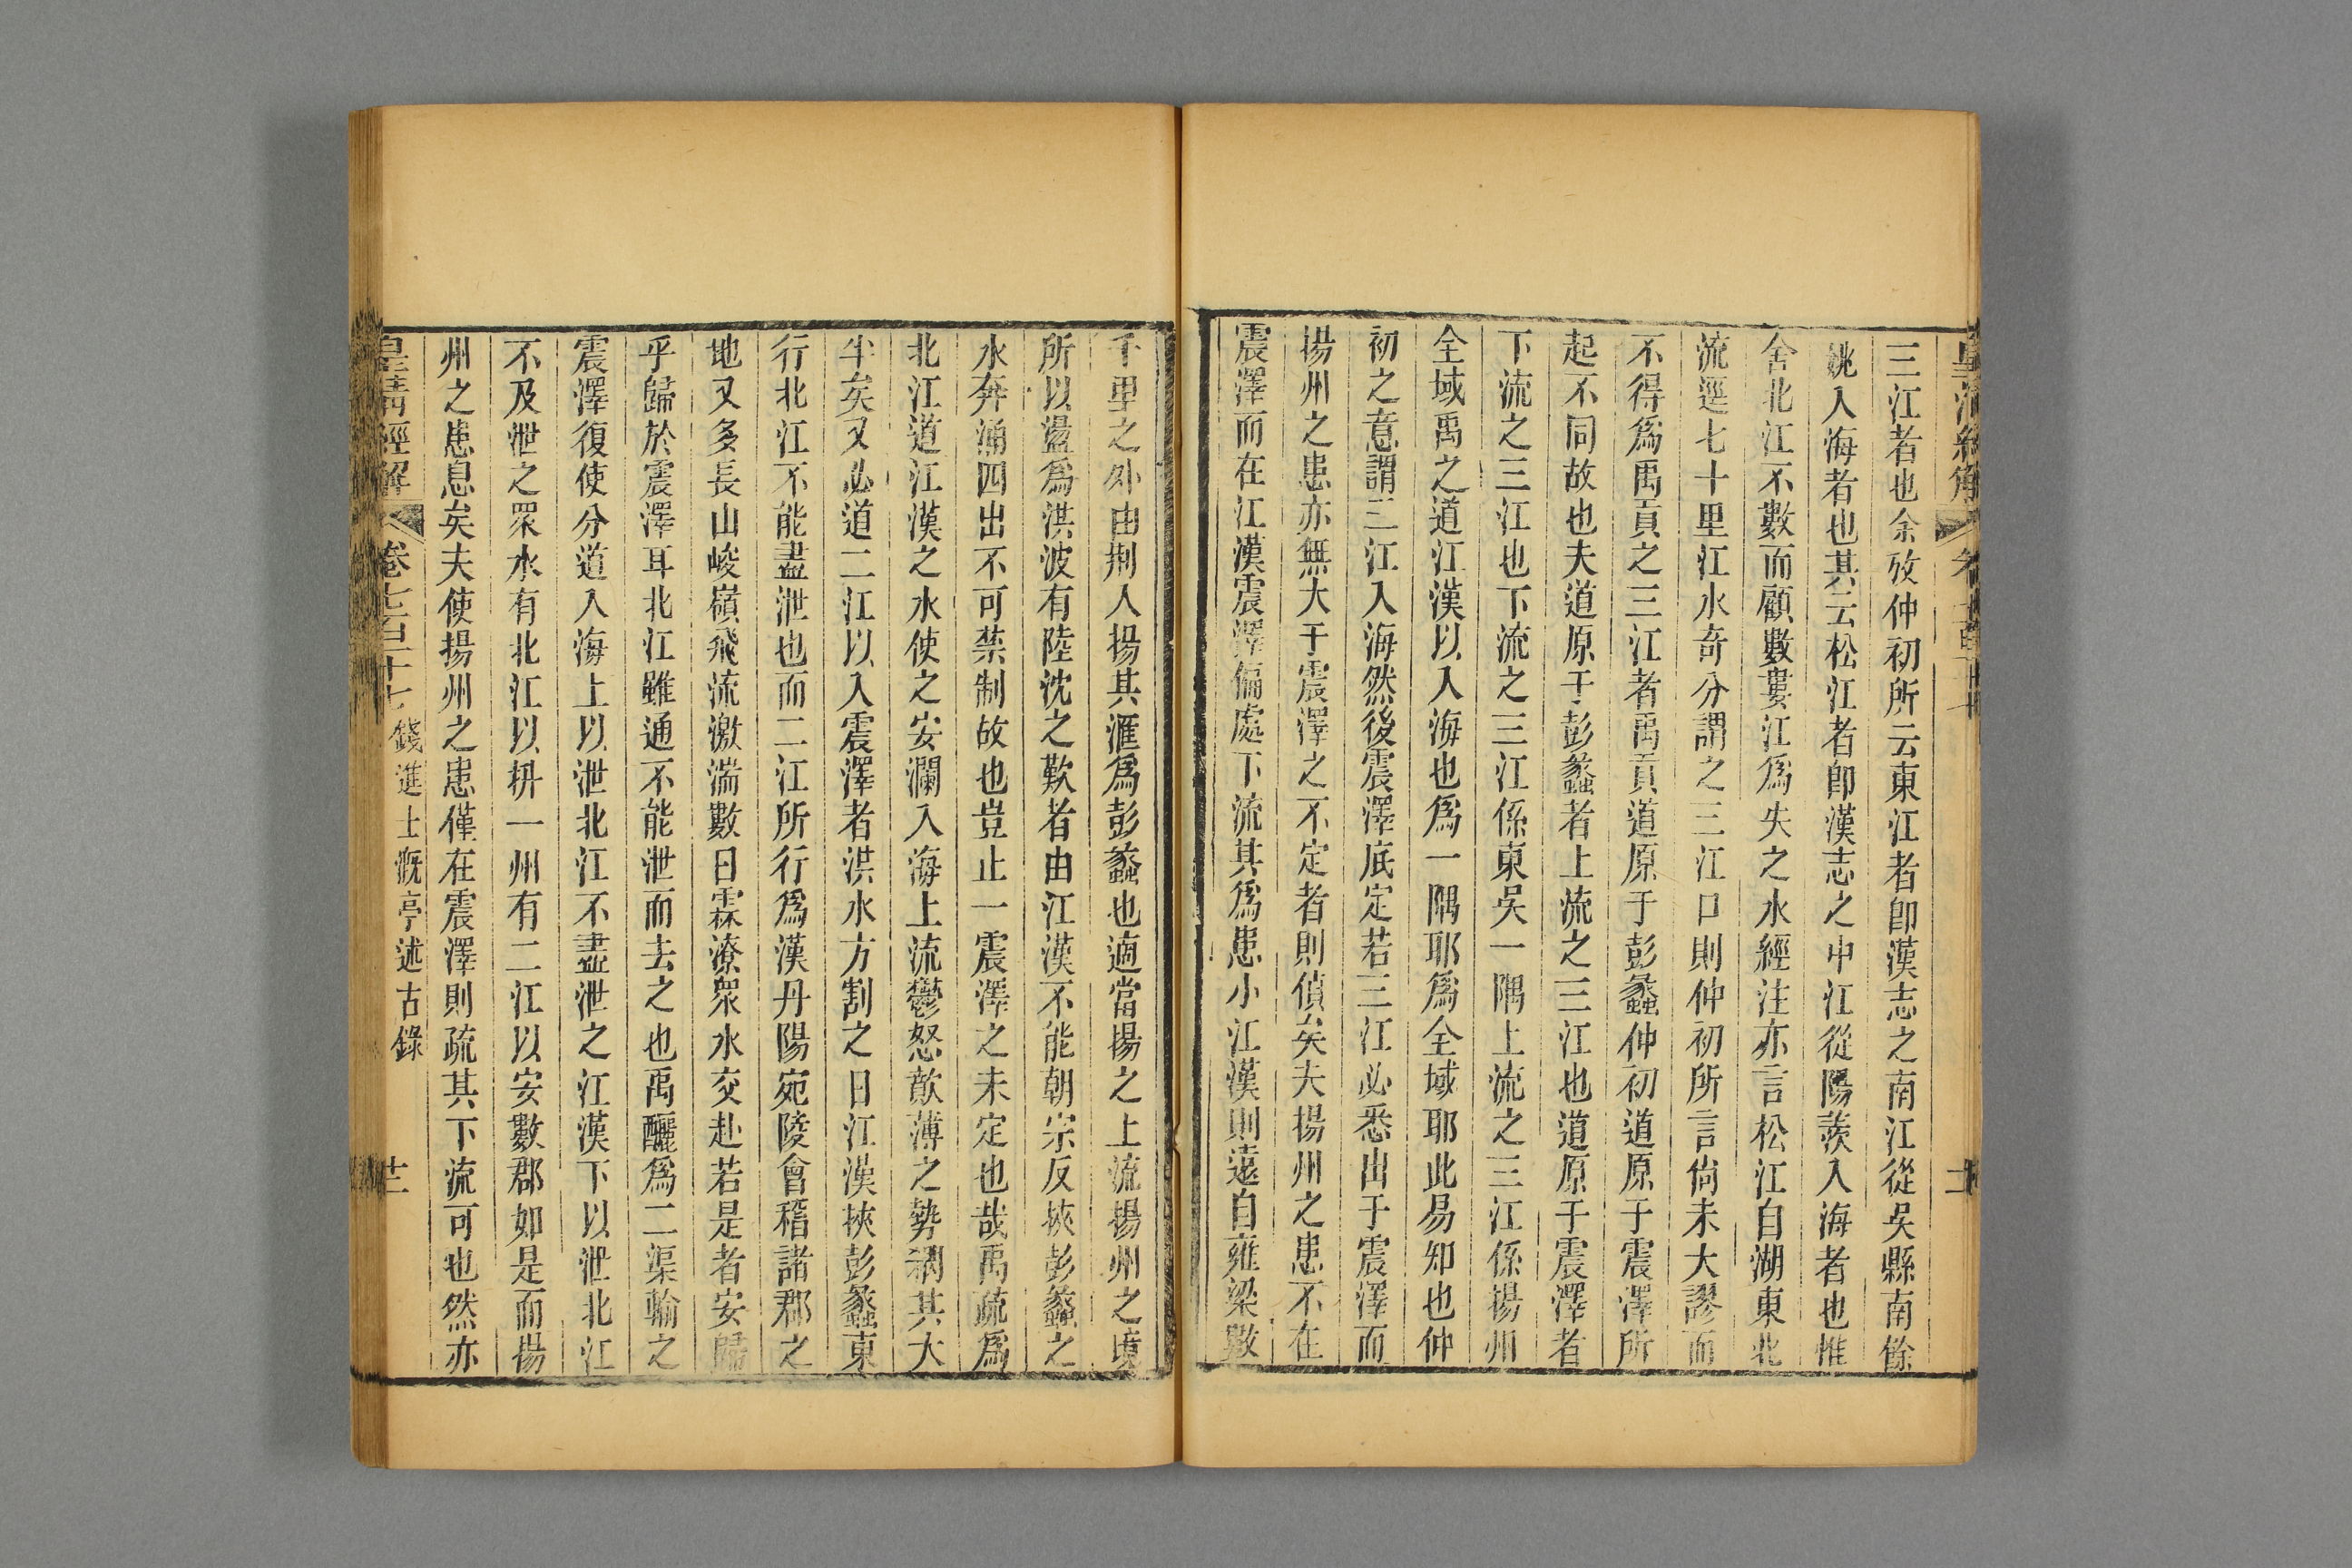 三江者也余攷仲初所云東江者卽漢志之南江從吳縣南餘
姚入海者也其云松江者卽漢志之中江從陽羨入海者也惟
舍北江不數而顧數婁江爲失之水經注亦言松江自湖東北
流逕七十里江水奇分謂之三江口則仲初所言尙未大謬而
不得爲禹貢之三江者禹貢道原于彭蠡仲初道原于震澤所
起不同故也夫道原于彭蠡者上流之三江也道原于震澤者
下流之三江也下流之三江係東吳一隅上流之三江係揚州
全域禹之道江漢以入海也爲一隅耶爲全域耶此易知也仲
初之意謂三江入海然後震澤底定若三江必悉出于震澤而
揚州之患亦無大于震澤之不定者則傎矣夫揚州之患不在
震澤而在江漢震澤偏處下流其爲患小江漢則遠自雍梁數
千里之外由荆入揚其滙爲彭蠡也適當揚之上流揚州之壤
所以盪爲洪波有陸沈之歎者由江漢不能朝宗反挾彭蠡之
水奔涌四出不可禁制故也豈止一震澤之未定也哉禹疏爲
北江道江漢之水使之安瀾入海上流鬱怒歊薄之勢稠其大
半矣又必道二江以入震澤者洪水方割之日江漢挾彭蠡東
行北江不能盡泄也而二江所行爲漢丹陽宛陵會稽諸郡之
地又多長山峻嶺飛流激湍數日霖潦衆水交赴若是者安歸
乎歸於震澤耳北江雖通不能泄而去之也禹釃爲二渠輸之
震澤復使分道入海上以泄北江不盡泄之江漢下以泄北江
不及泄之眾水有北江以拼一州有二江以安數郡如是而揚
州之患息矣夫使揚州之患僅在震澤則疏其下流可也然亦
皇淸經解 卷七百十七 錢進士漑亭述古錄